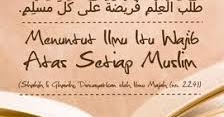 طَلَبُ الْعِلْمِ فَرِيْضَةٌ عَلَى كُلِّ مُسْلِمٍ.
Menuntut Ilmu Itu Wajib
Atas Setiap Muslim
(Shahih li Ghoirihi, Diriwayatkan oleh Ibnu Majah, (no. 224))